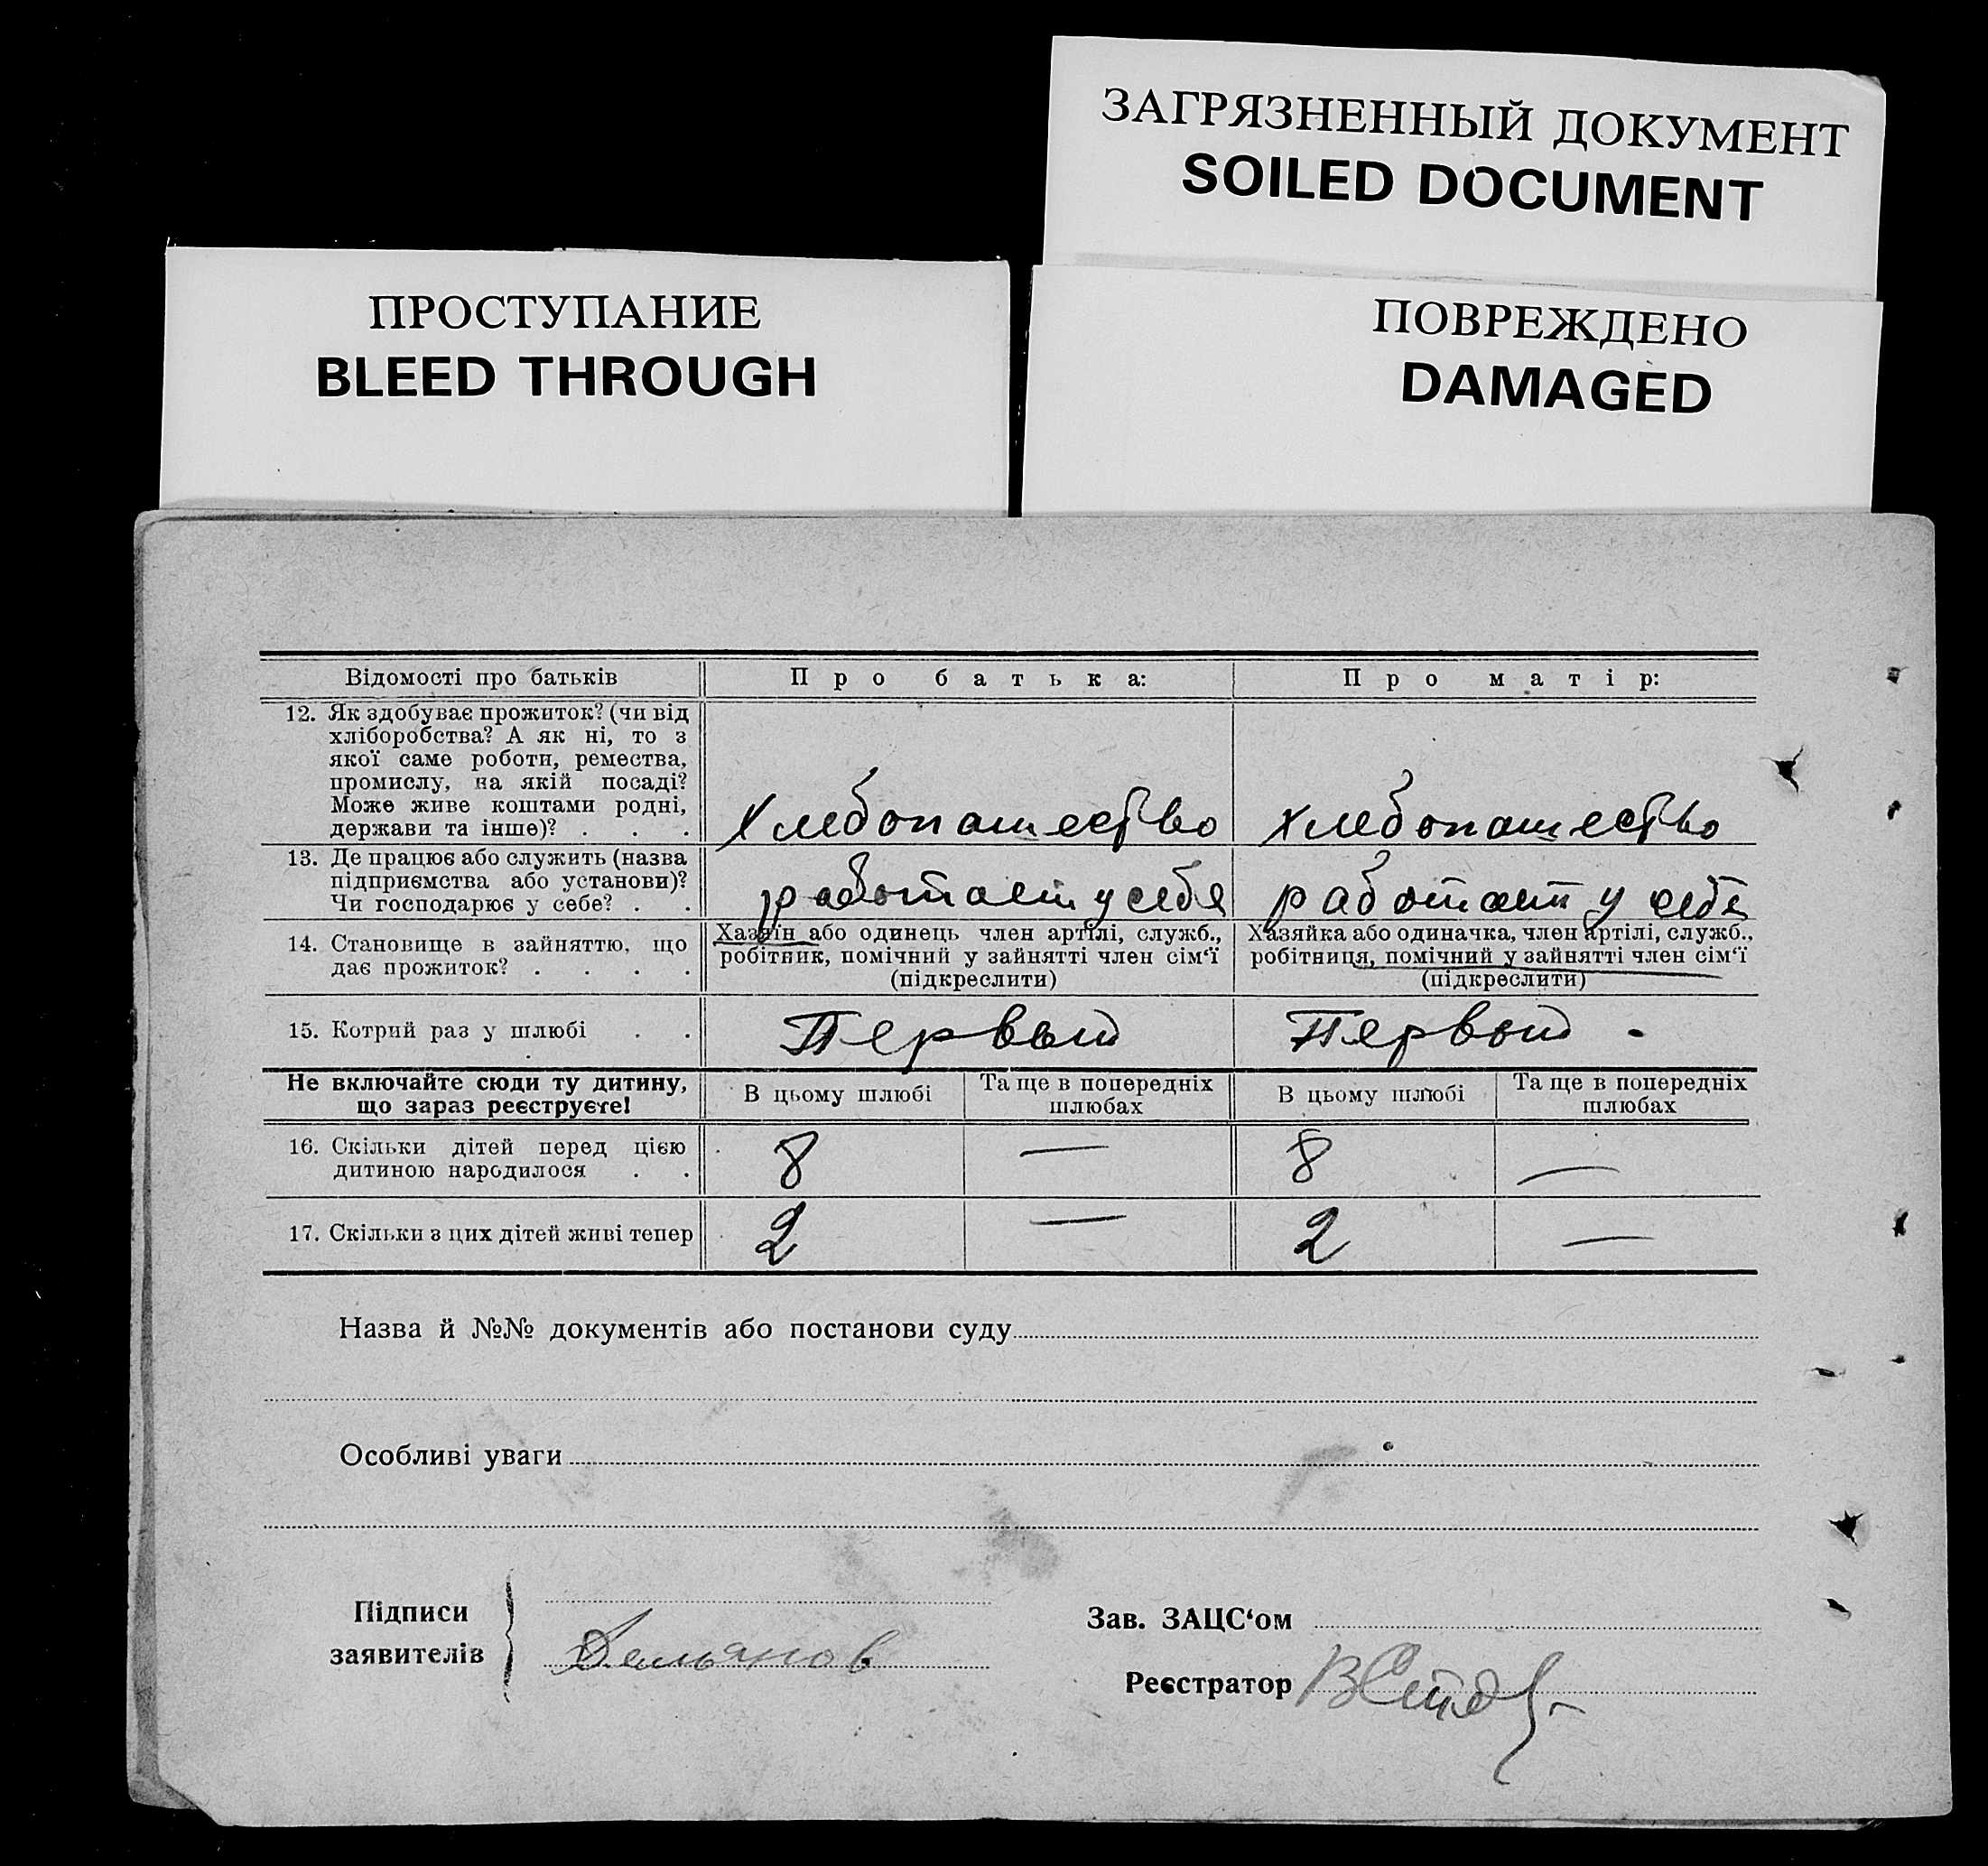 ЗАГРЯЗНЕННЫЙ ДОКУМЕНТ
SOILED DOCUMENT
ПРОСТУПАНИЕ
BLEED THROUGH
ПОВРЕЖДЕНО
DAMAGED
Відомості про батьків Про батька: Про матір:
12. Як здобуває прожиток? (чи від
хліборобства? А як ні, то з
якої саме роботи, ремества,
промислу, на якій посаді?
Може живе коштами родні,
держави та інше)? . . .
Хлебопашество Хлебопашество
13. Де працює або служить (назва
підприємства або установи)?
Чи господарює у себе? . .
работает у себя работает у себя
14. Становище в зайняттю, що
дає прожиток? . . . .
Хазяїн або одинець член артілі, служб.,
робітник, помічний у зайнятті член сім‘ї
(підкреслити)
Хазяйка або одиначка, член артілі, служб.,
робітниця, помічний у зайнятті член сім‘ї
(підкреслити)
15. Котрий раз у шлюбі . . Первый Первый -
Не включайте сюди ту дитину,
що зараз реєструєте!
В цьому шлюбі
Та ще в попередніх
шлюбах
В цьому шлюбі
Та ще в попередніх
шлюбах
16. Скільки дітей перед цією
дитиною народилося . .
8 — 8 —
17. Скільки з цих дітей живі тепер 2 — 2 —
Назва й №№ документів або постанови суду
Особливі уваги
Підписи
заявителів
Зав. ЗАЦС‘ом
Реєстратор